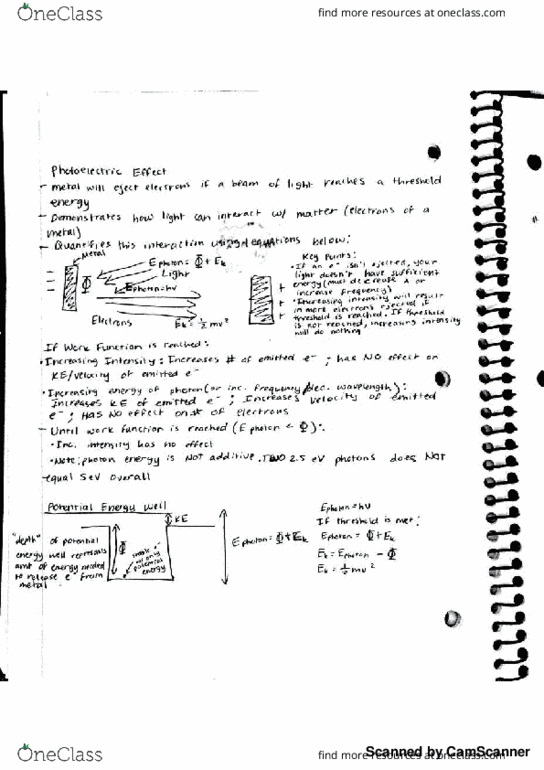 OneClass
find more resources at oneclass.com
Photoelectric Effect
- metal will eject electrons if a beam of light reaches a threshold
energy
- Demonstrates how light can interact w/ matter (electrons of a
metal)
- Quantifies this interaction using equations below:
Metal
Φ
Ephoton = Φ + Ek
Light
Ephoton = hν
Electrons
Ek = ½mv²
Key Points:
• If an e⁻ isn't ejected, your
light doesn't have sufficient
energy (must decrease λ or
increase frequency)
• Increasing intensity will result
in more electrons ejected if
threshold is reached. If threshold
is not reached, increasing intensity
will do nothing
If Work Function is reached:
• Increasing Intensity: Increases # of emitted e⁻ ; has NO effect on
KE/velocity of emitted e⁻
• Increasing energy of photon (or inc. frequency/dec. wavelength):
Increases KE of emitted e⁻ ; Increases velocity of emitted
e⁻ ; HAS NO effect on # of electrons
- Until work function is reached (Ephoton < Φ):
• Inc. intensity has no effect
• Note: photon energy is NOT additive. TWO 2.5 eV photons does NOT
equal 5eV overall
Potential Energy Well
KE
"depth" of potential
energy well represents
amt of energy needed
to release e⁻ from
metal
Φ
potential
energy
Ephoton = Φ + Ek
Ephoton = hν
If threshold is met:
Ephoton = Φ + Ek
Ek = Ephoton - Φ
Ek = ½mv²
OneClass
find more resources at oneclass.com
Scanned by CamScanner